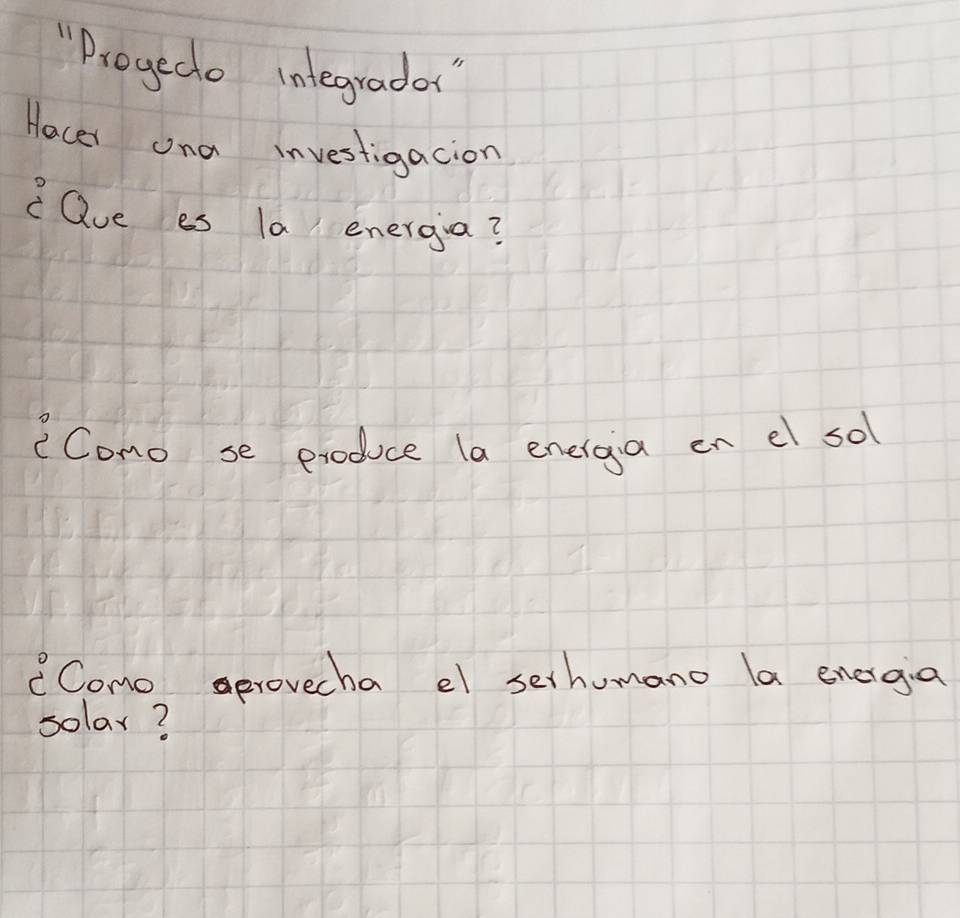 "Proyecto integrador"
Hacer una investigacion
¿Que es la energia?
¿Como se produce la energia en el sol
¿Como aprovecha el serhumano la energia
solar?